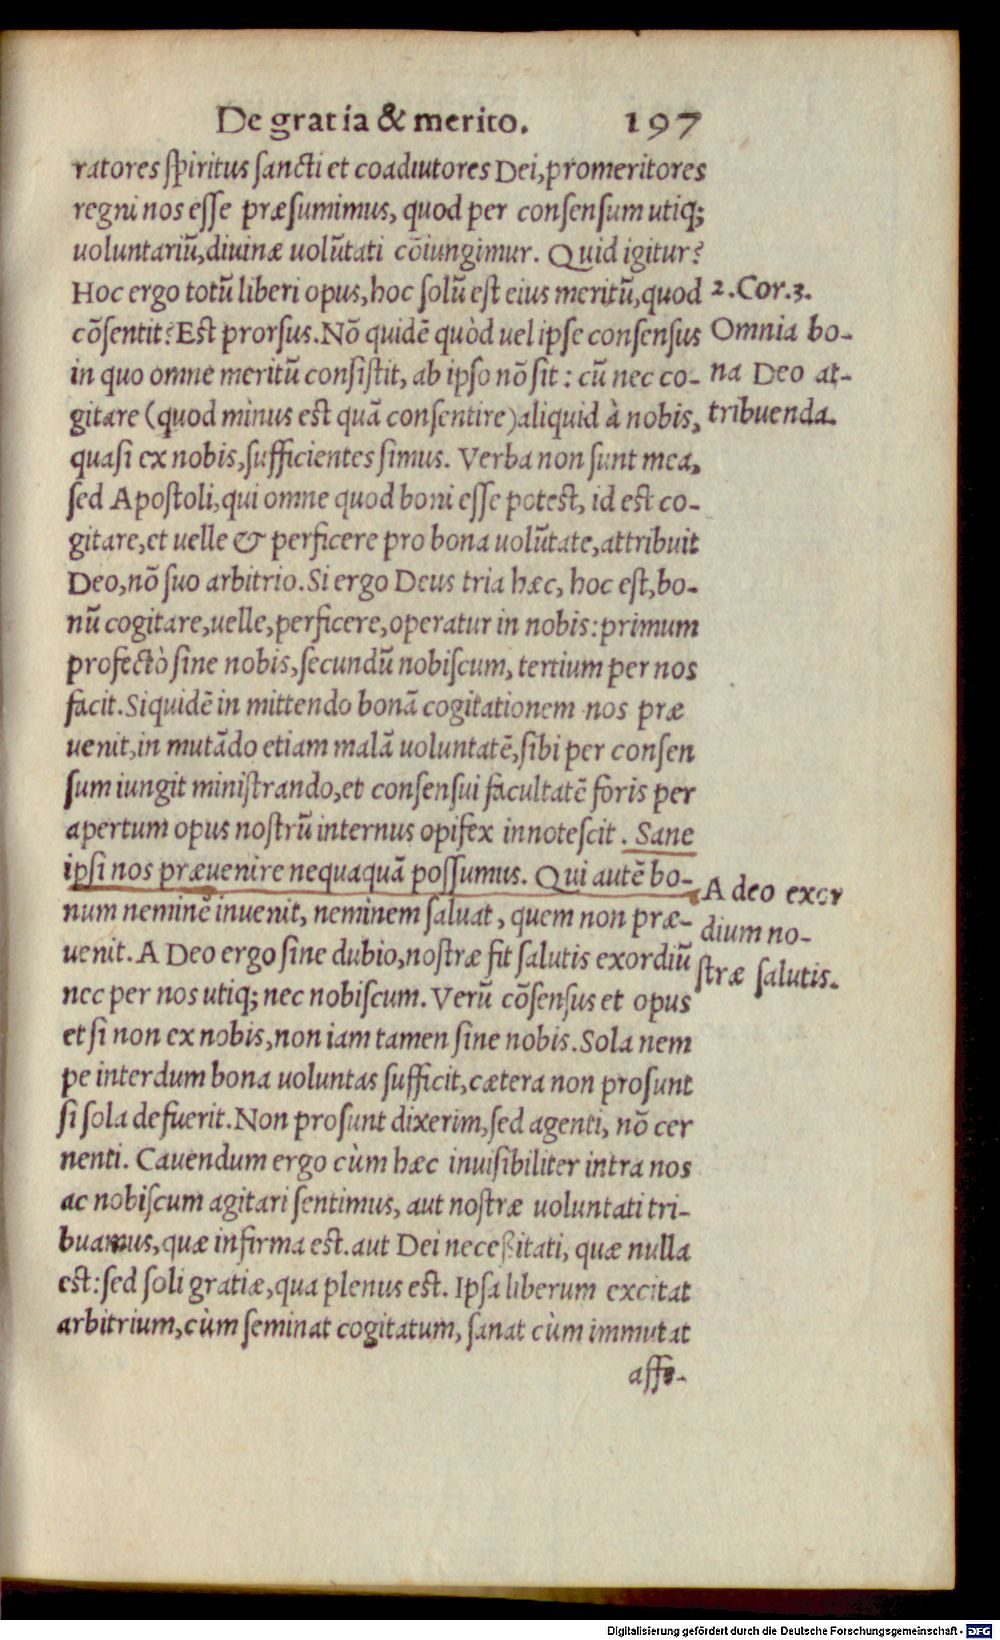 De gratia & merito. 197
ratores ſpiritus ſancti et coadiutores Dei, promeritores
regni nos eſſe præſumimus, quod per conſenſum utiq;
uoluntariũ, diuinæ uolũtati cõiungimur. Quid igitur?
Hoc ergo totũ liberi opus, hoc ſolũ eſt eius meritũ, quod
cõſentit? Eſt prorſus. Nõ quidẽ quòd uel ipſe conſenſus
in quo omne meritũ conſiſtit, ab ipſo nõ ſit: cũ nec co-
gitare (quod minus eſt quã conſentire) aliquid à nobis,
quaſi ex nobis, ſufficientes ſimus. Verba non ſunt mea,
ſed Apoſtoli, qui omne quod boni eſſe poteſt, id eſt co-
gitare, et uelle & perficere pro bona uolũtate, attribuit
Deo, nõ ſuo arbitrio. Si ergo Deus tria hæc, hoc eſt, bo-
nũ cogitare, uelle, perficere, operatur in nobis: primum
profectò ſine nobis, ſecundũ nobiſcum, tertium per nos
facit. Siquidẽ in mittendo bonã cogitationem nos præ
uenit, in mutãdo etiam malã uoluntatẽ, ſibi per conſen
ſum iungit miniſtrando, et conſenſui facultatẽ foris per
apertum opus noſtrũ internus opifex innoteſcit. Sane
ipſi nos præuenire nequaquã poſſumus. Qui autẽ bo-
num neminẽ inuenit, neminem ſaluat, quem non præ-
uenit. A Deo ergo ſine dubio, noſtræ fit ſalutis exordiũ
nec per nos utiq; nec nobiſcum. Verũ cõſenſus et opus
et ſi non ex nobis, non iam tamen ſine nobis. Sola nem
pe interdum bona uoluntas ſufficit, cætera non proſunt
ſi ſola defuerit. Non proſunt dixerim, ſed agenti, nõ cer
nenti. Cauendum ergo cùm hæc inuiſibiliter intra nos
ac nobiſcum agitari ſentimus, aut noſtræ uoluntati tri-
buamus, quæ infirma est. aut Dei neceßitati, quæ nulla
eſt: ſed ſoli gratiæ, qua plenus eſt. Ipſa liberum excitat
arbitrium, cùm ſeminat cogitatum, ſanat cùm immutat
affe-
2. Cor. 3.
Omnia bo-
na Deo at-
tribuenda.
A deo exor
dium no-
ſtræ ſalutis.
Digitalisierung gefördert durch die Deutsche Forschungsgemeinschaft - DFG